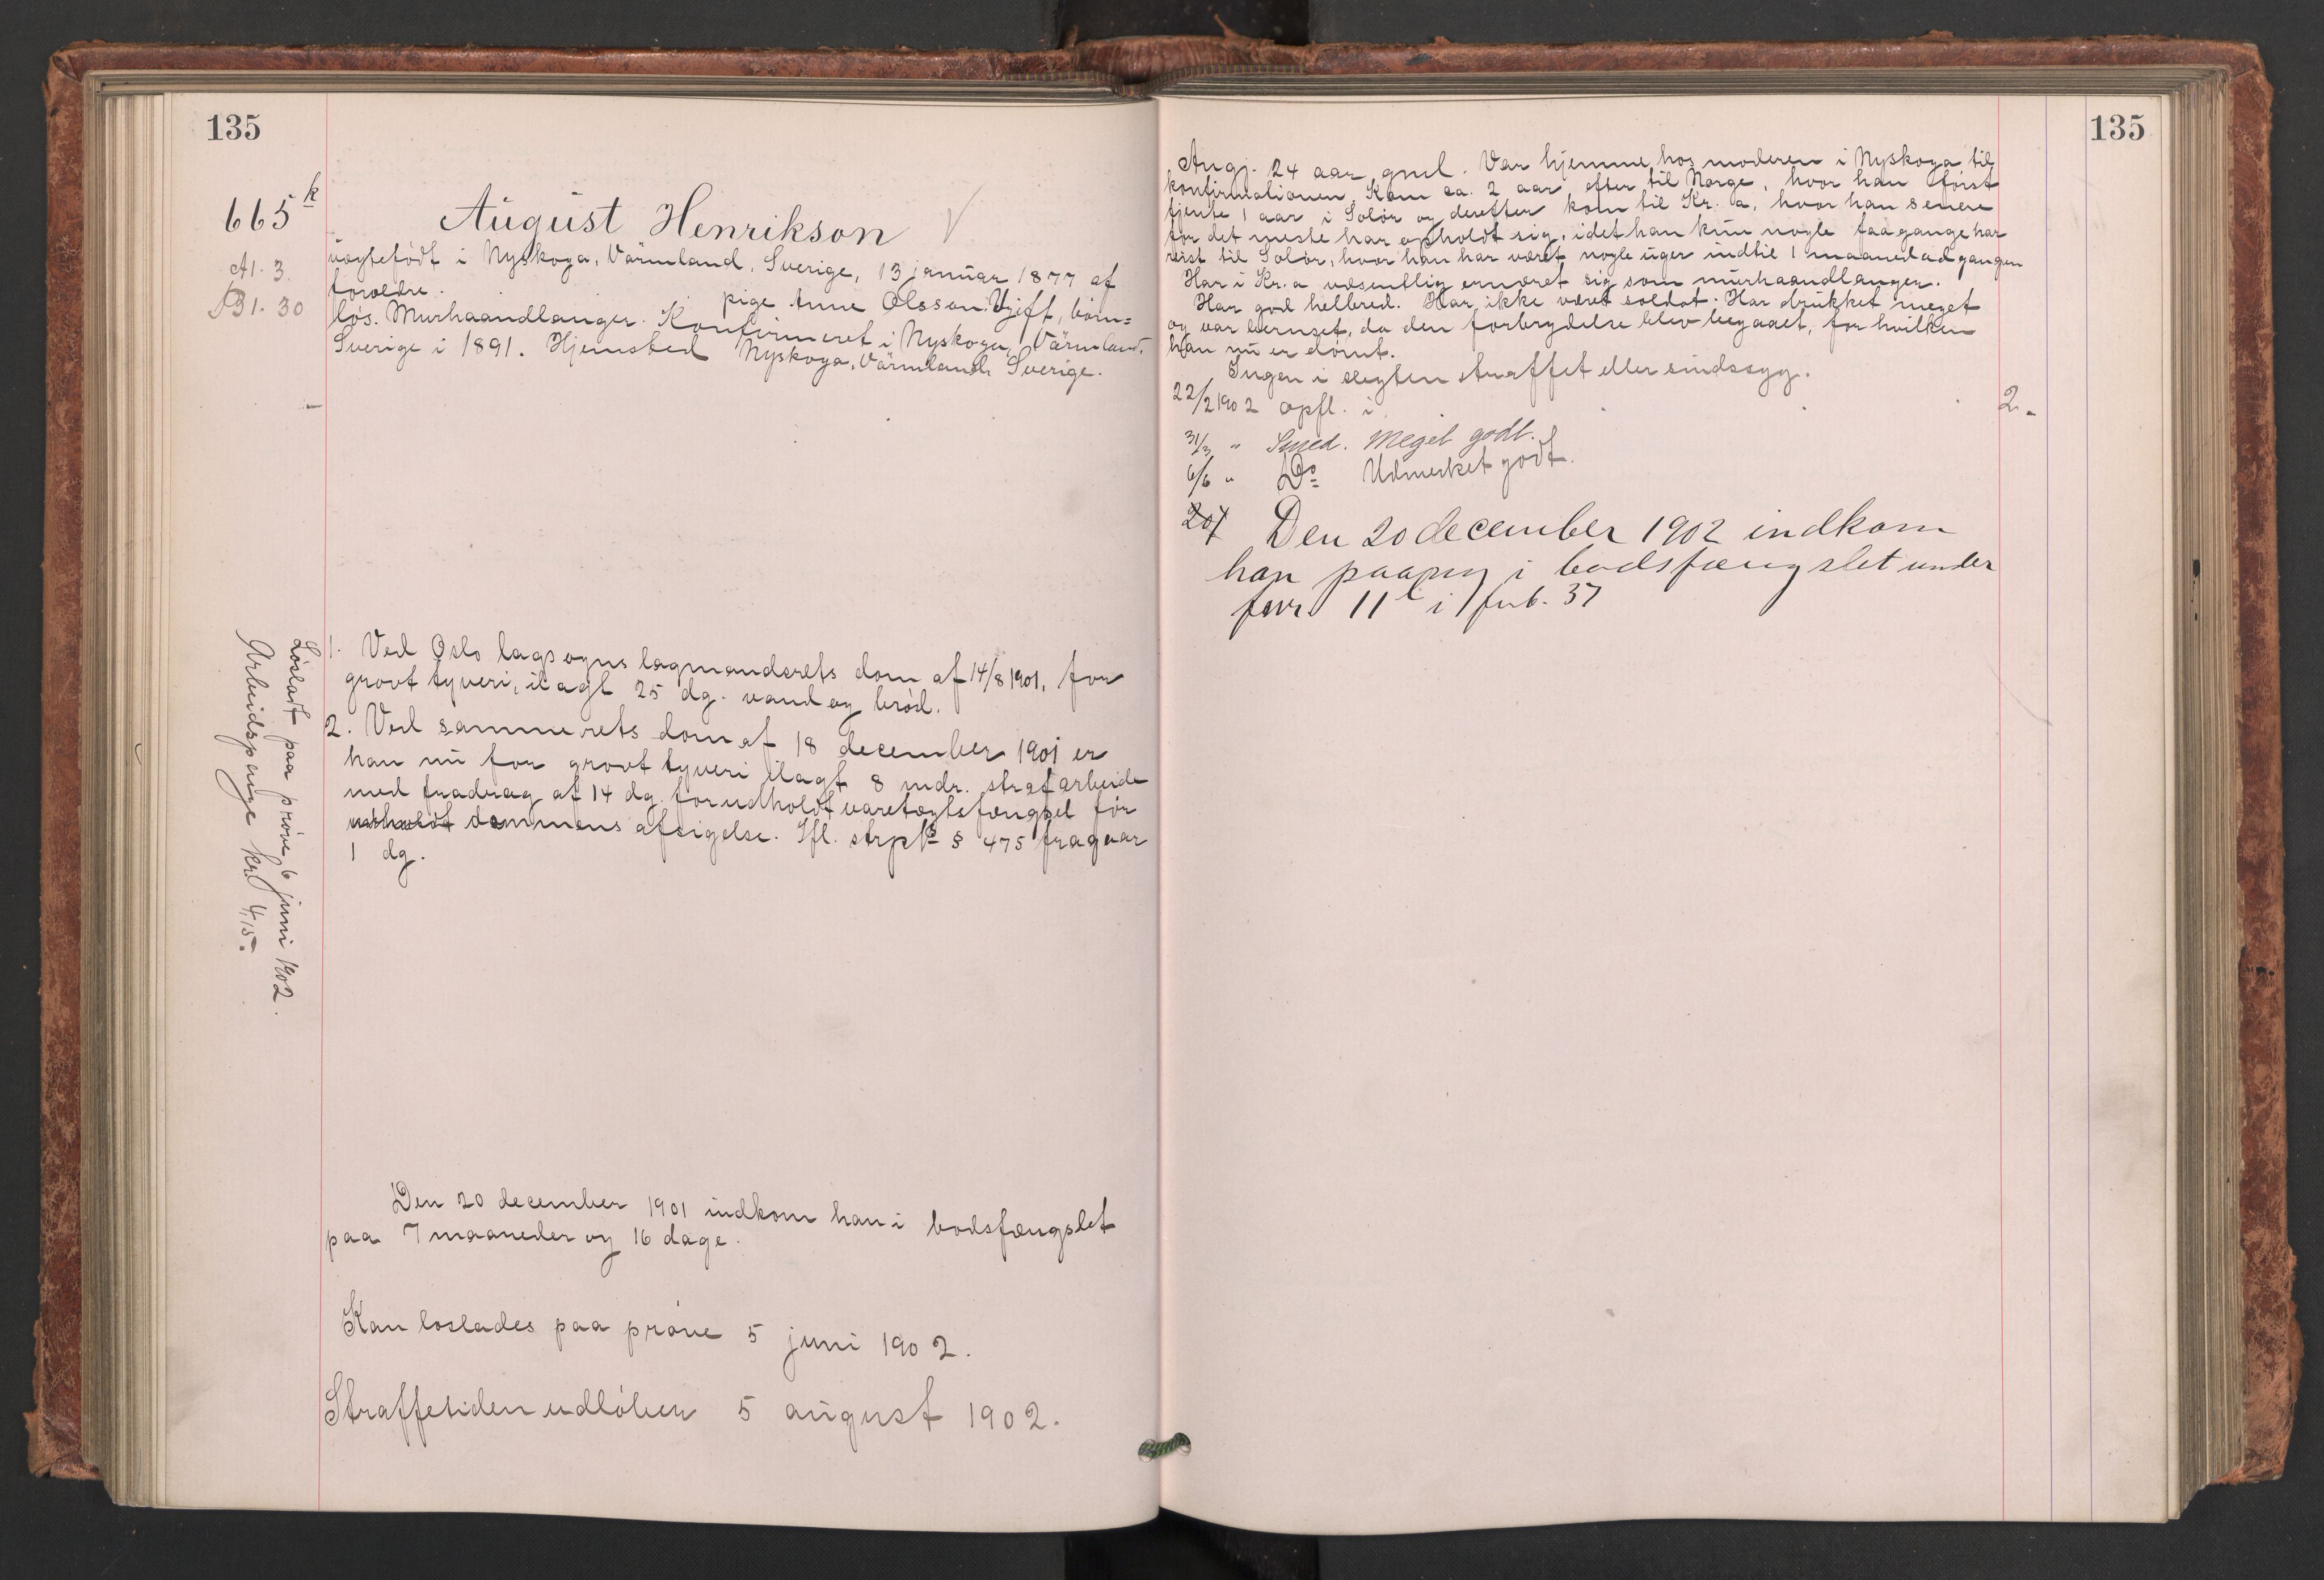 135
665 k
A1. 3.
B1. 30
August Henrikson
uægtefødt i Nyskoga, Värmland, Sverige, 13 januar 1877 af
forældre. pige Anne Olsson. Ugift, børn=
løs. Murhaandlanger. Konfirmeret i Nyskoga, Värmland,
Sverige i 1891. Hjemsted Nyskoga, Värmland, Sverige.
1. Ved Oslo lagsogns lagmandsrets dom af 14/8 1901, for
grovt tyveri, ilagt 25 dg. vand og brød.
2. Ved samme rets dom af 18 december 1901 er
han nu for grovt tyveri ilagt 8 mdr. strafarbeide
med fradrag af 14 dg. for udholdt varetægtsfængsel før
udholdt dommens afsigelse. Ifl. strpl § 475 fragaar
1 dg.
Løsladt paa prøve 6 juni 1902.
Arbeidspenge kr. 4,15.
Den 20 december 1901 indkom han i bodsfængslet
paa 7 maaneder og 16 dage.
Kan løslades paa prøve 5 juni 1902.
Straffetiden udløber 5 august 1902.
135
Angj. 24 aar gml. Var hjemme hos moderen i Nyskoga til
konfirmationen. Kom ca. 2 aar efter til Norge, hvor han først
tjente 1 aar i Solør og derefter kom til Kr.a, hvor han senere
for det meste har opholdt sig, idet han kun nogle faa gange har
reist til Solør, hvor han har været nogle uger indtil 1 maaned ad gangen
Har i Kr.a væsentlig ernæret sig som murhaandlanger.
Har god helbred. Har ikke været soldat. Har drukket meget
og var beruset, da den forbrydelse blev begaaet, for hvilken
han nu er dømt.
Ingen i slegten straffet eller sindssyg.
22/2 1902 opfl. i 2.
31/3 " Smed. Meget godt.
6/6 " Do Udmerket godt.
20/ Den 20 december 1902 indkom
han paany i bodsfængslet under
fnr 11 i 37